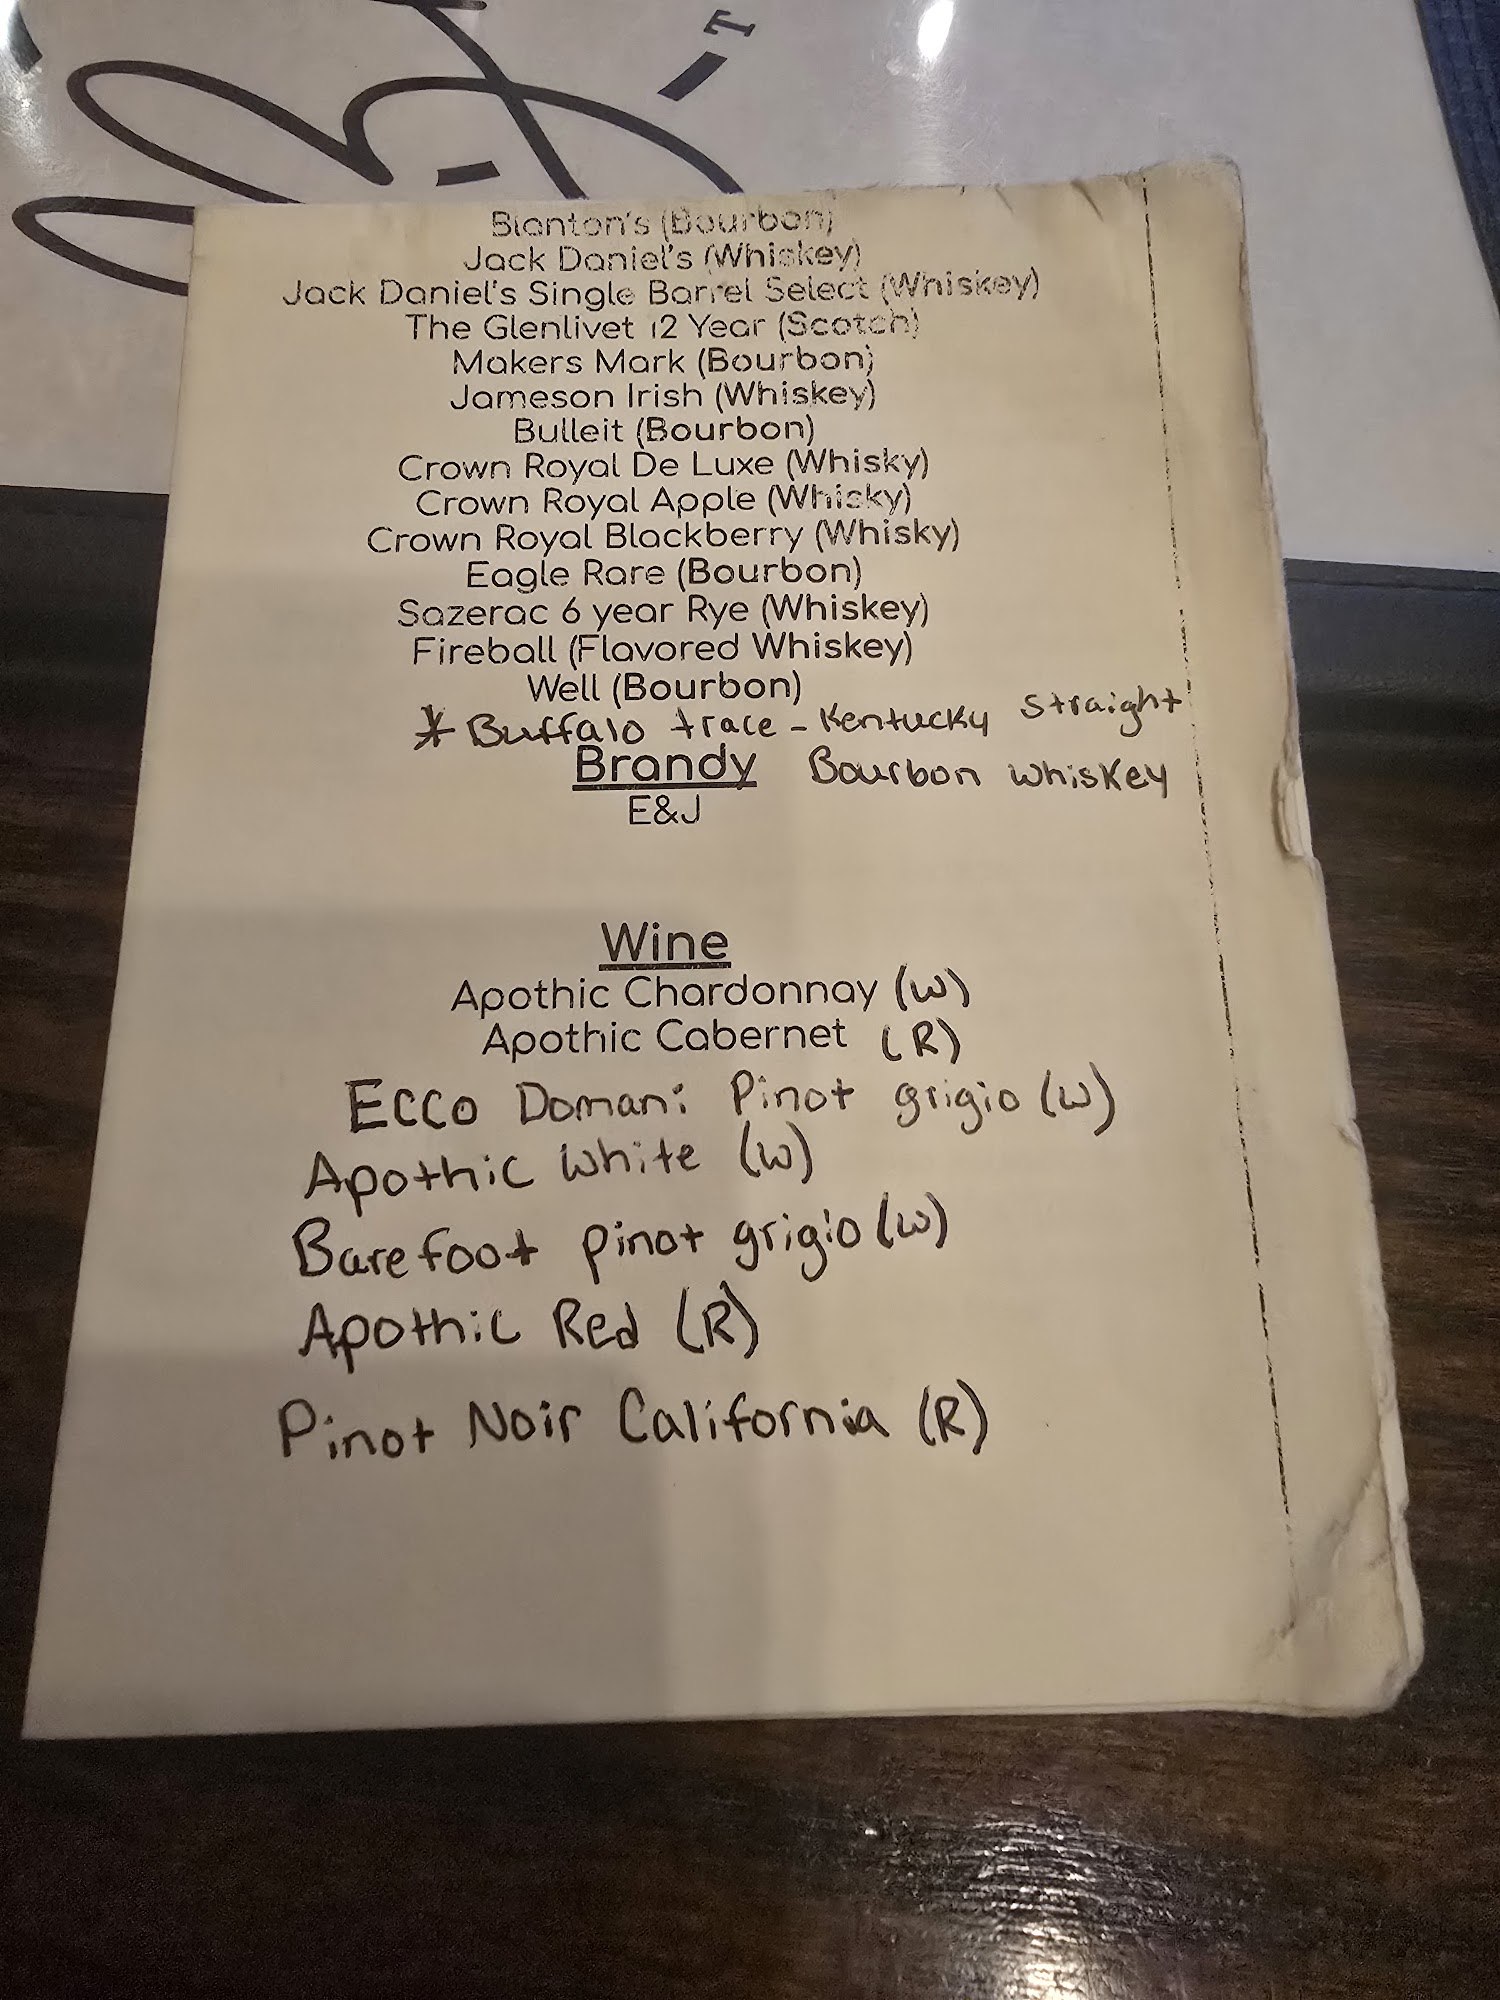 Blanton's (Bourbon)
Jack Daniel's (Whiskey)
Jack Daniel's Single Barrel Select (Whiskey)
The Glenlivet 12 Year (Scotch)
Makers Mark (Bourbon)
Jameson Irish (Whiskey)
Bulleit (Bourbon)
Crown Royal De Luxe (Whisky)
Crown Royal Apple (Whisky)
Crown Royal Blackberry (Whisky)
Eagle Rare (Bourbon)
Sazerac 6 year Rye (Whiskey)
Fireball (Flavored Whiskey)
Well (Bourbon)
* Buffalo trace - Kentucky Straight
Bourbon whiskey
Brandy
E&J
Wine
Apothic Chardonnay (W)
Apothic Cabernet (R)
Ecco Domani Pinot grigio (W)
Apothic white (W)
Barefoot pinot grigio (W)
Apothic Red (R)
Pinot Noir California (R)